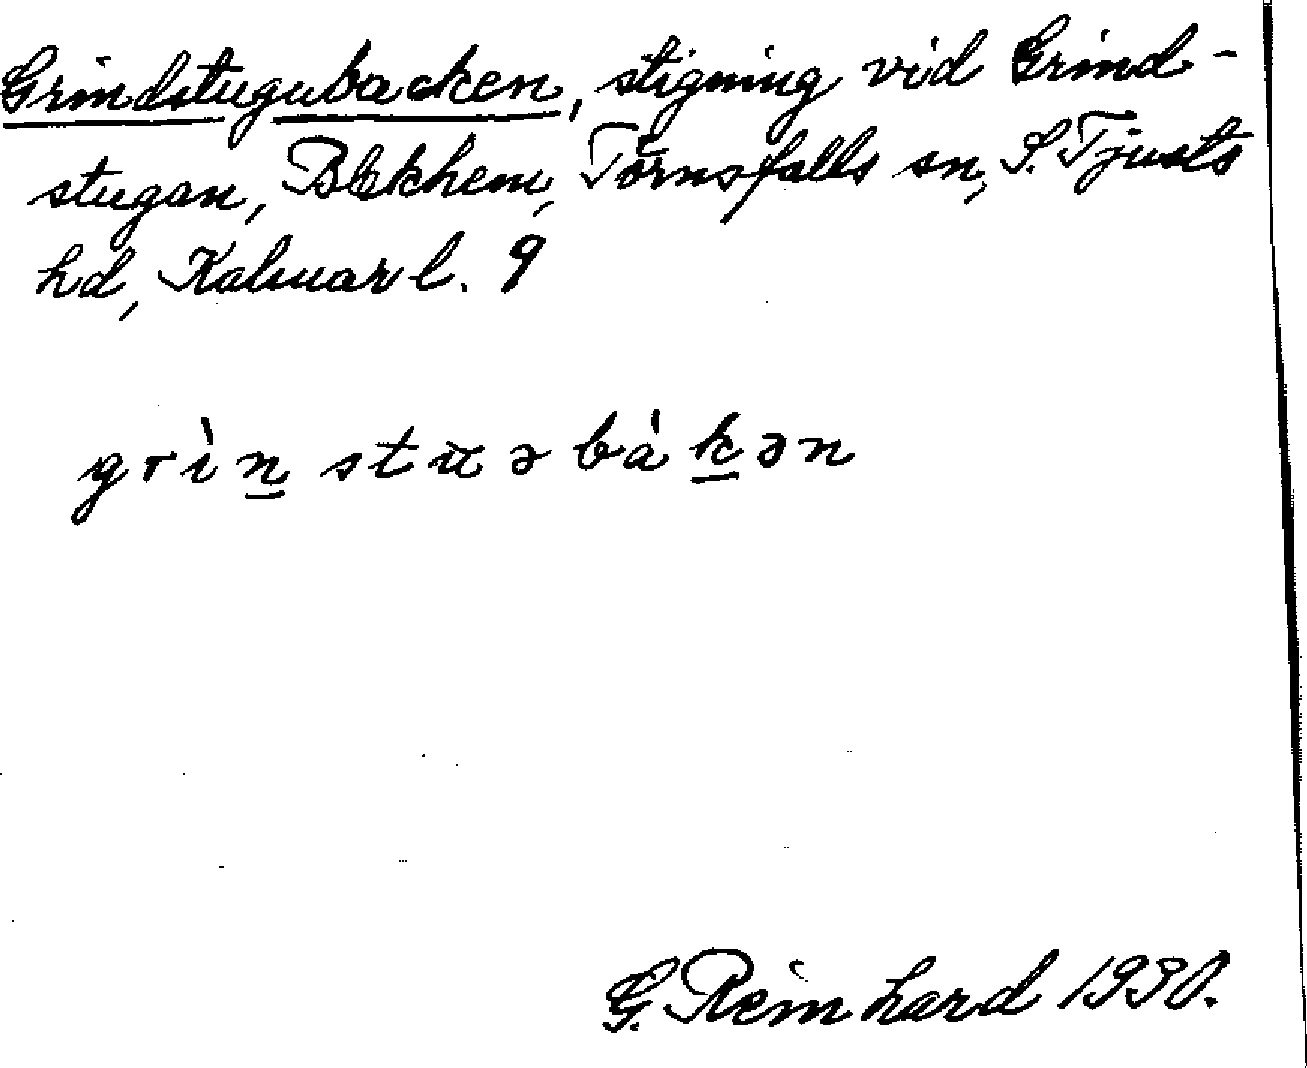 Grindstugubacken, stigning vid Grind-
stugan, Blekhem, Törnsfalls sn, S. Tjusts
hd, Kalmar l. 9
grìn̲ stu̅ə bàk̲ən
G. Reinhard 1930.